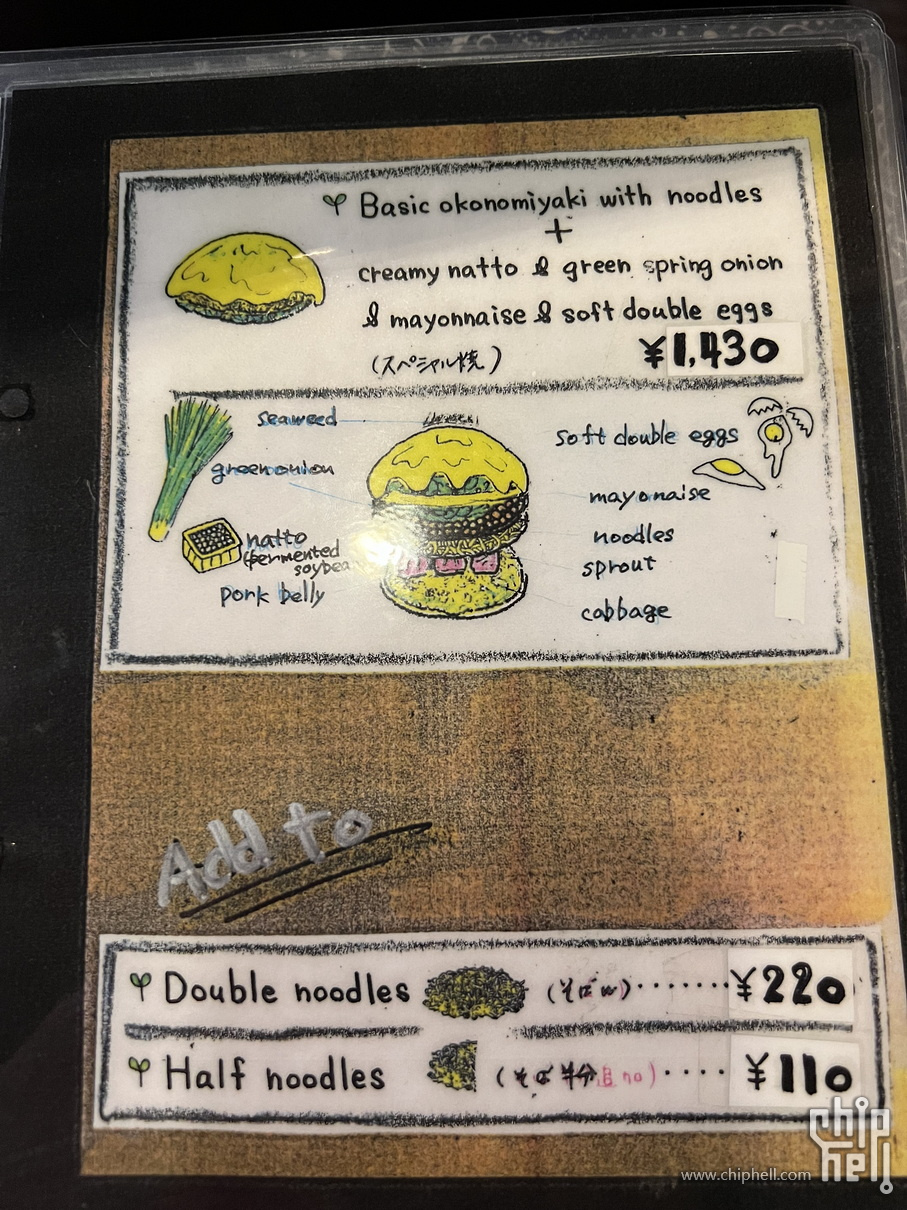 Basic okonomiyaki with noodles
+
creamy natto & green spring onion
& mayonnaise & soft double eggs
(スペシャル焼)
¥1,430
seaweed
green onion
natto
(fermented
soybea
pork belly
soft double eggs
mayonaise
noodles
sprout
cabbage
Add to
Double noodles (そばW)・・・・・・・¥220
Half noodles (そば半分追加)・・・・¥110
www.chiphell.com
chip
hell